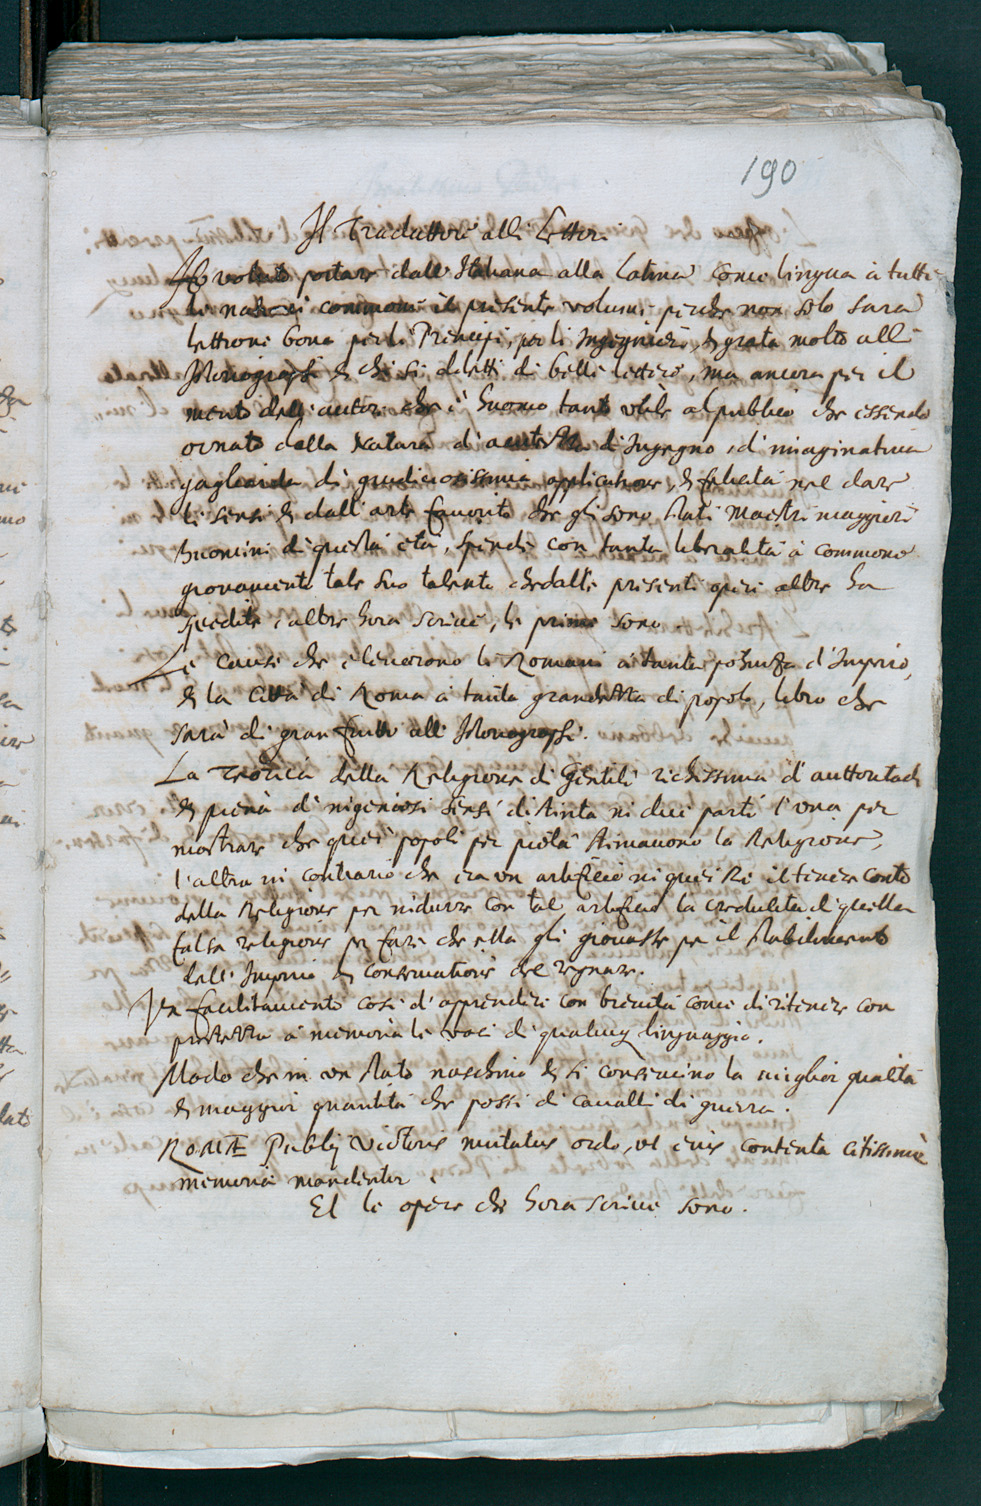 190
Il Traduttore alli Lettori
Ho voluto portare dall'Italiana alla Latina come lingua à tutte
le nationi commune il presente volume perche non solo sarà
lettione bona per li Principi, per li Ingegnieri, & grata molto alli
Istoriografi & chi si diletti di belle lettere, ma ancora per il
merito dell'autore che è huomo tanto utile al publico che essendo
ornato dalla Natura d'acutezza di Ingegno, d'imaginativa
gagliarda di giudiciosissima applicatione, & felicità nel dare
li sensi & dall'arte favorito che gli sono stati Maestri maggiori
huomini di questa età, spende con tanta liberalità à commone
giovamento tale suo talento che dalle presenti opere altre ha
spedite, altre hora scrive, le prime sono.
Le cause che elevorono li Romani à tanta potenza d'Imperio,
& la Città di Roma à tanta grandezza di popolo, libro che
sarà di gran frutto alli Istoriografi.
La Teorica della Religione di Gentili richissima d'auttorità
& piena di ingeniosi sensi distinta in due parti l'una per
mostrare che quei popoli per pietà stimavono la Religione,
l'altra in contrario che era un artificio in quei Re il tener conto
della Religione per indurre con tal artificio la credulità di quella
falsa religione per fare che ella gli giovasse per il stabilimento
dell'Imperio & conservatione del regnare.
Un facilitamento cosi d'apprendere con brevità come di ritenere con
prestezza à memoria le voci di qualunq linguaggio.
Modo che in un stato naschino & si conservino la miglior qualità
& maggior quantità che possi di cavalli di guerra.
ROMÆ Publij Victoris mutatus ordo, ut eius contenta citissimè
memoriæ mandentur.
Et le opere che hora scrive sono.